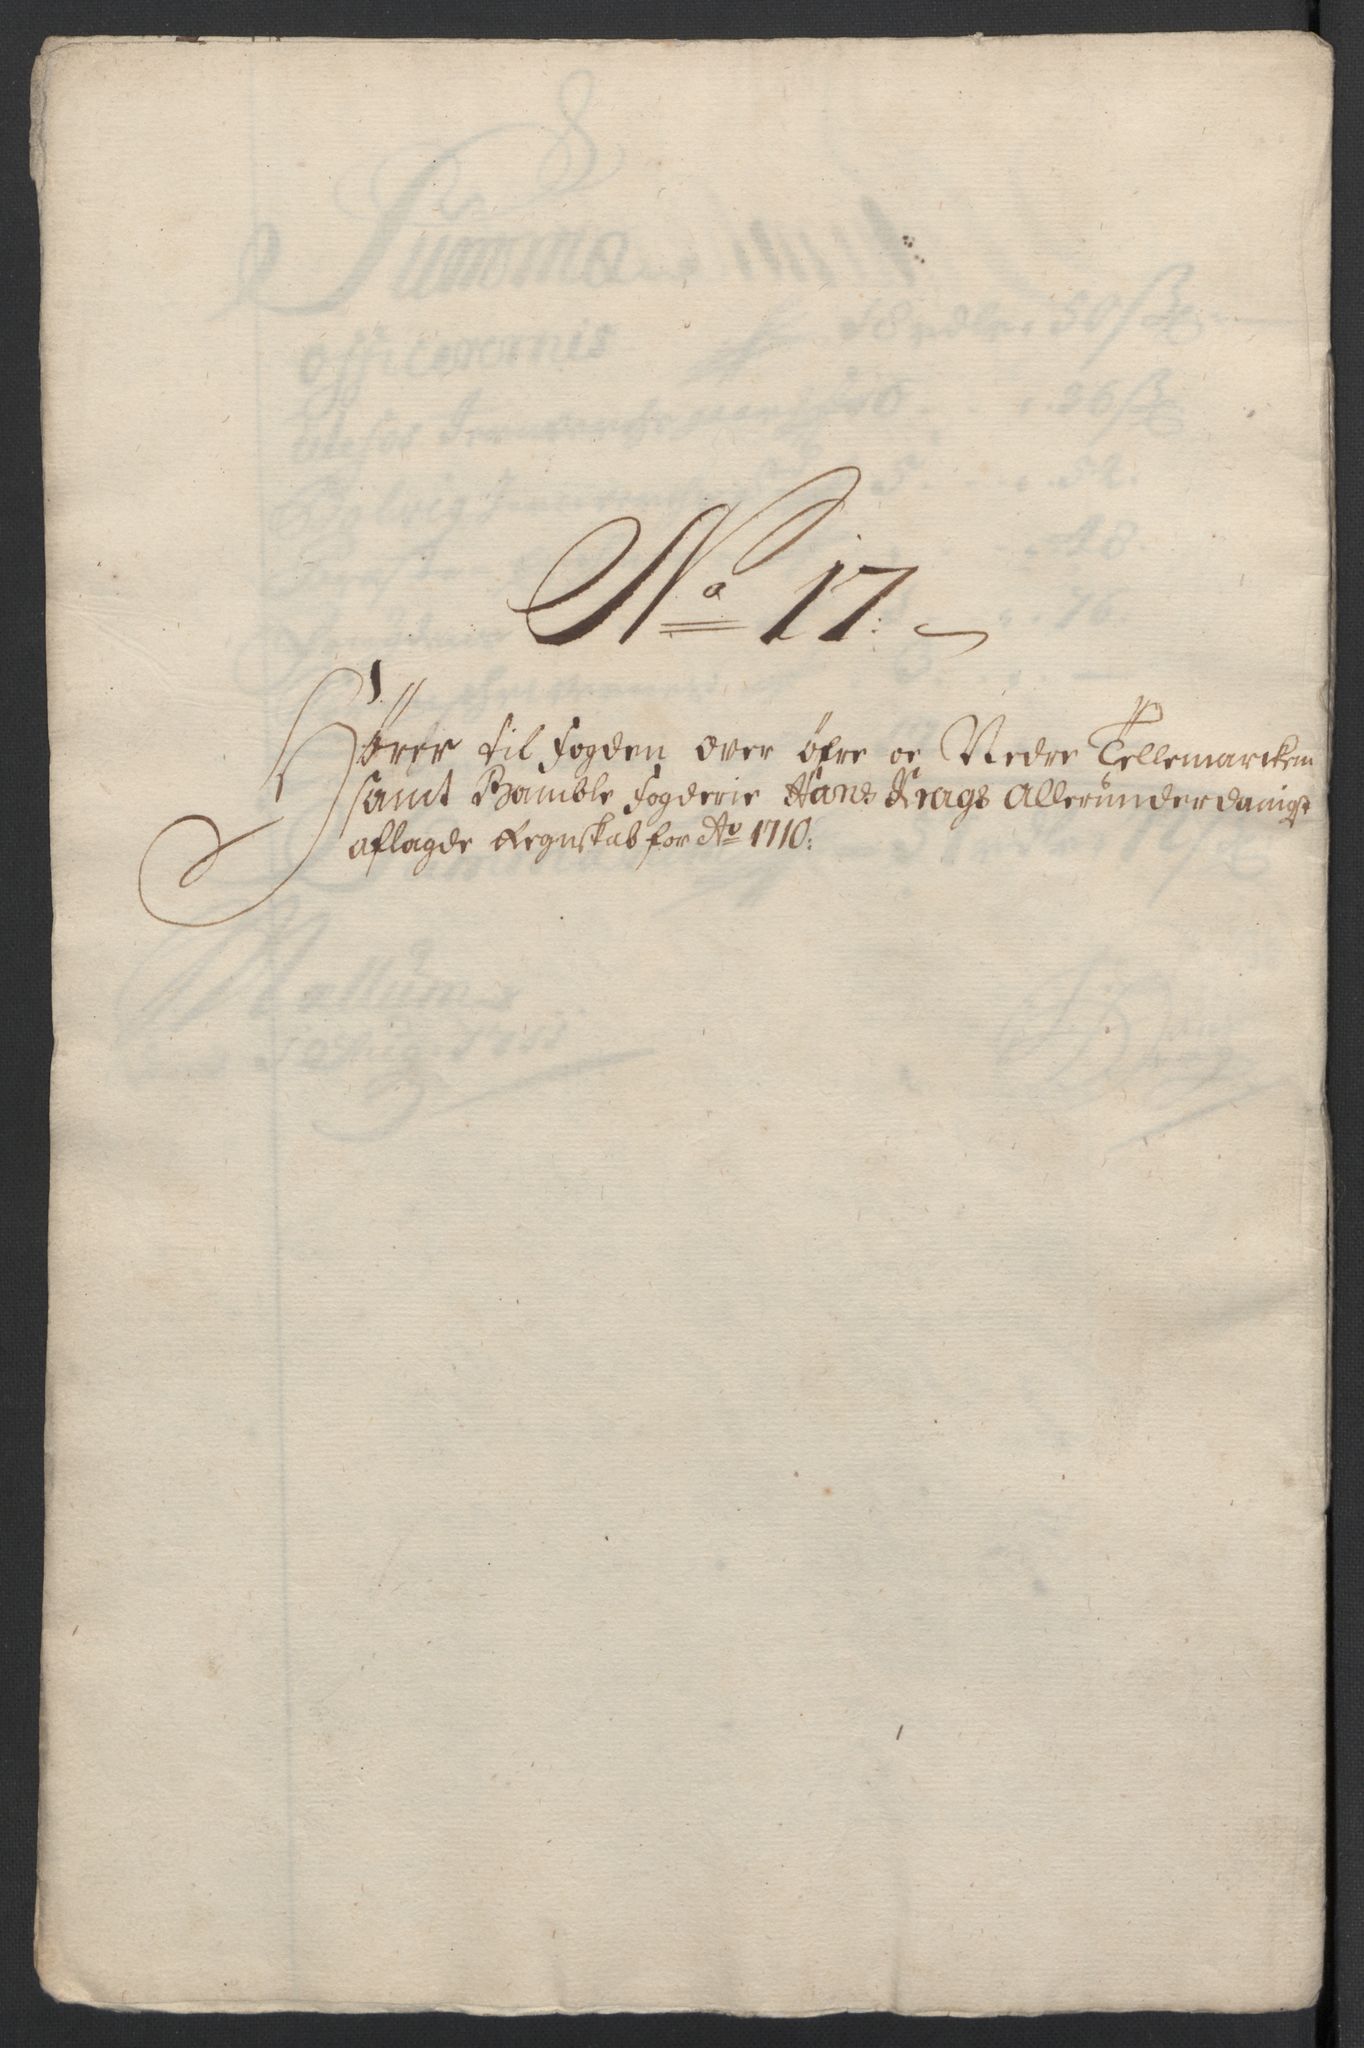 No 17.
Hörer til fogden over öfre oc Nedre Tellemarcken
samt Bamble fogderie Hans Krags Allerunderdanigst
aflagde Regnskab for Ao 1710: